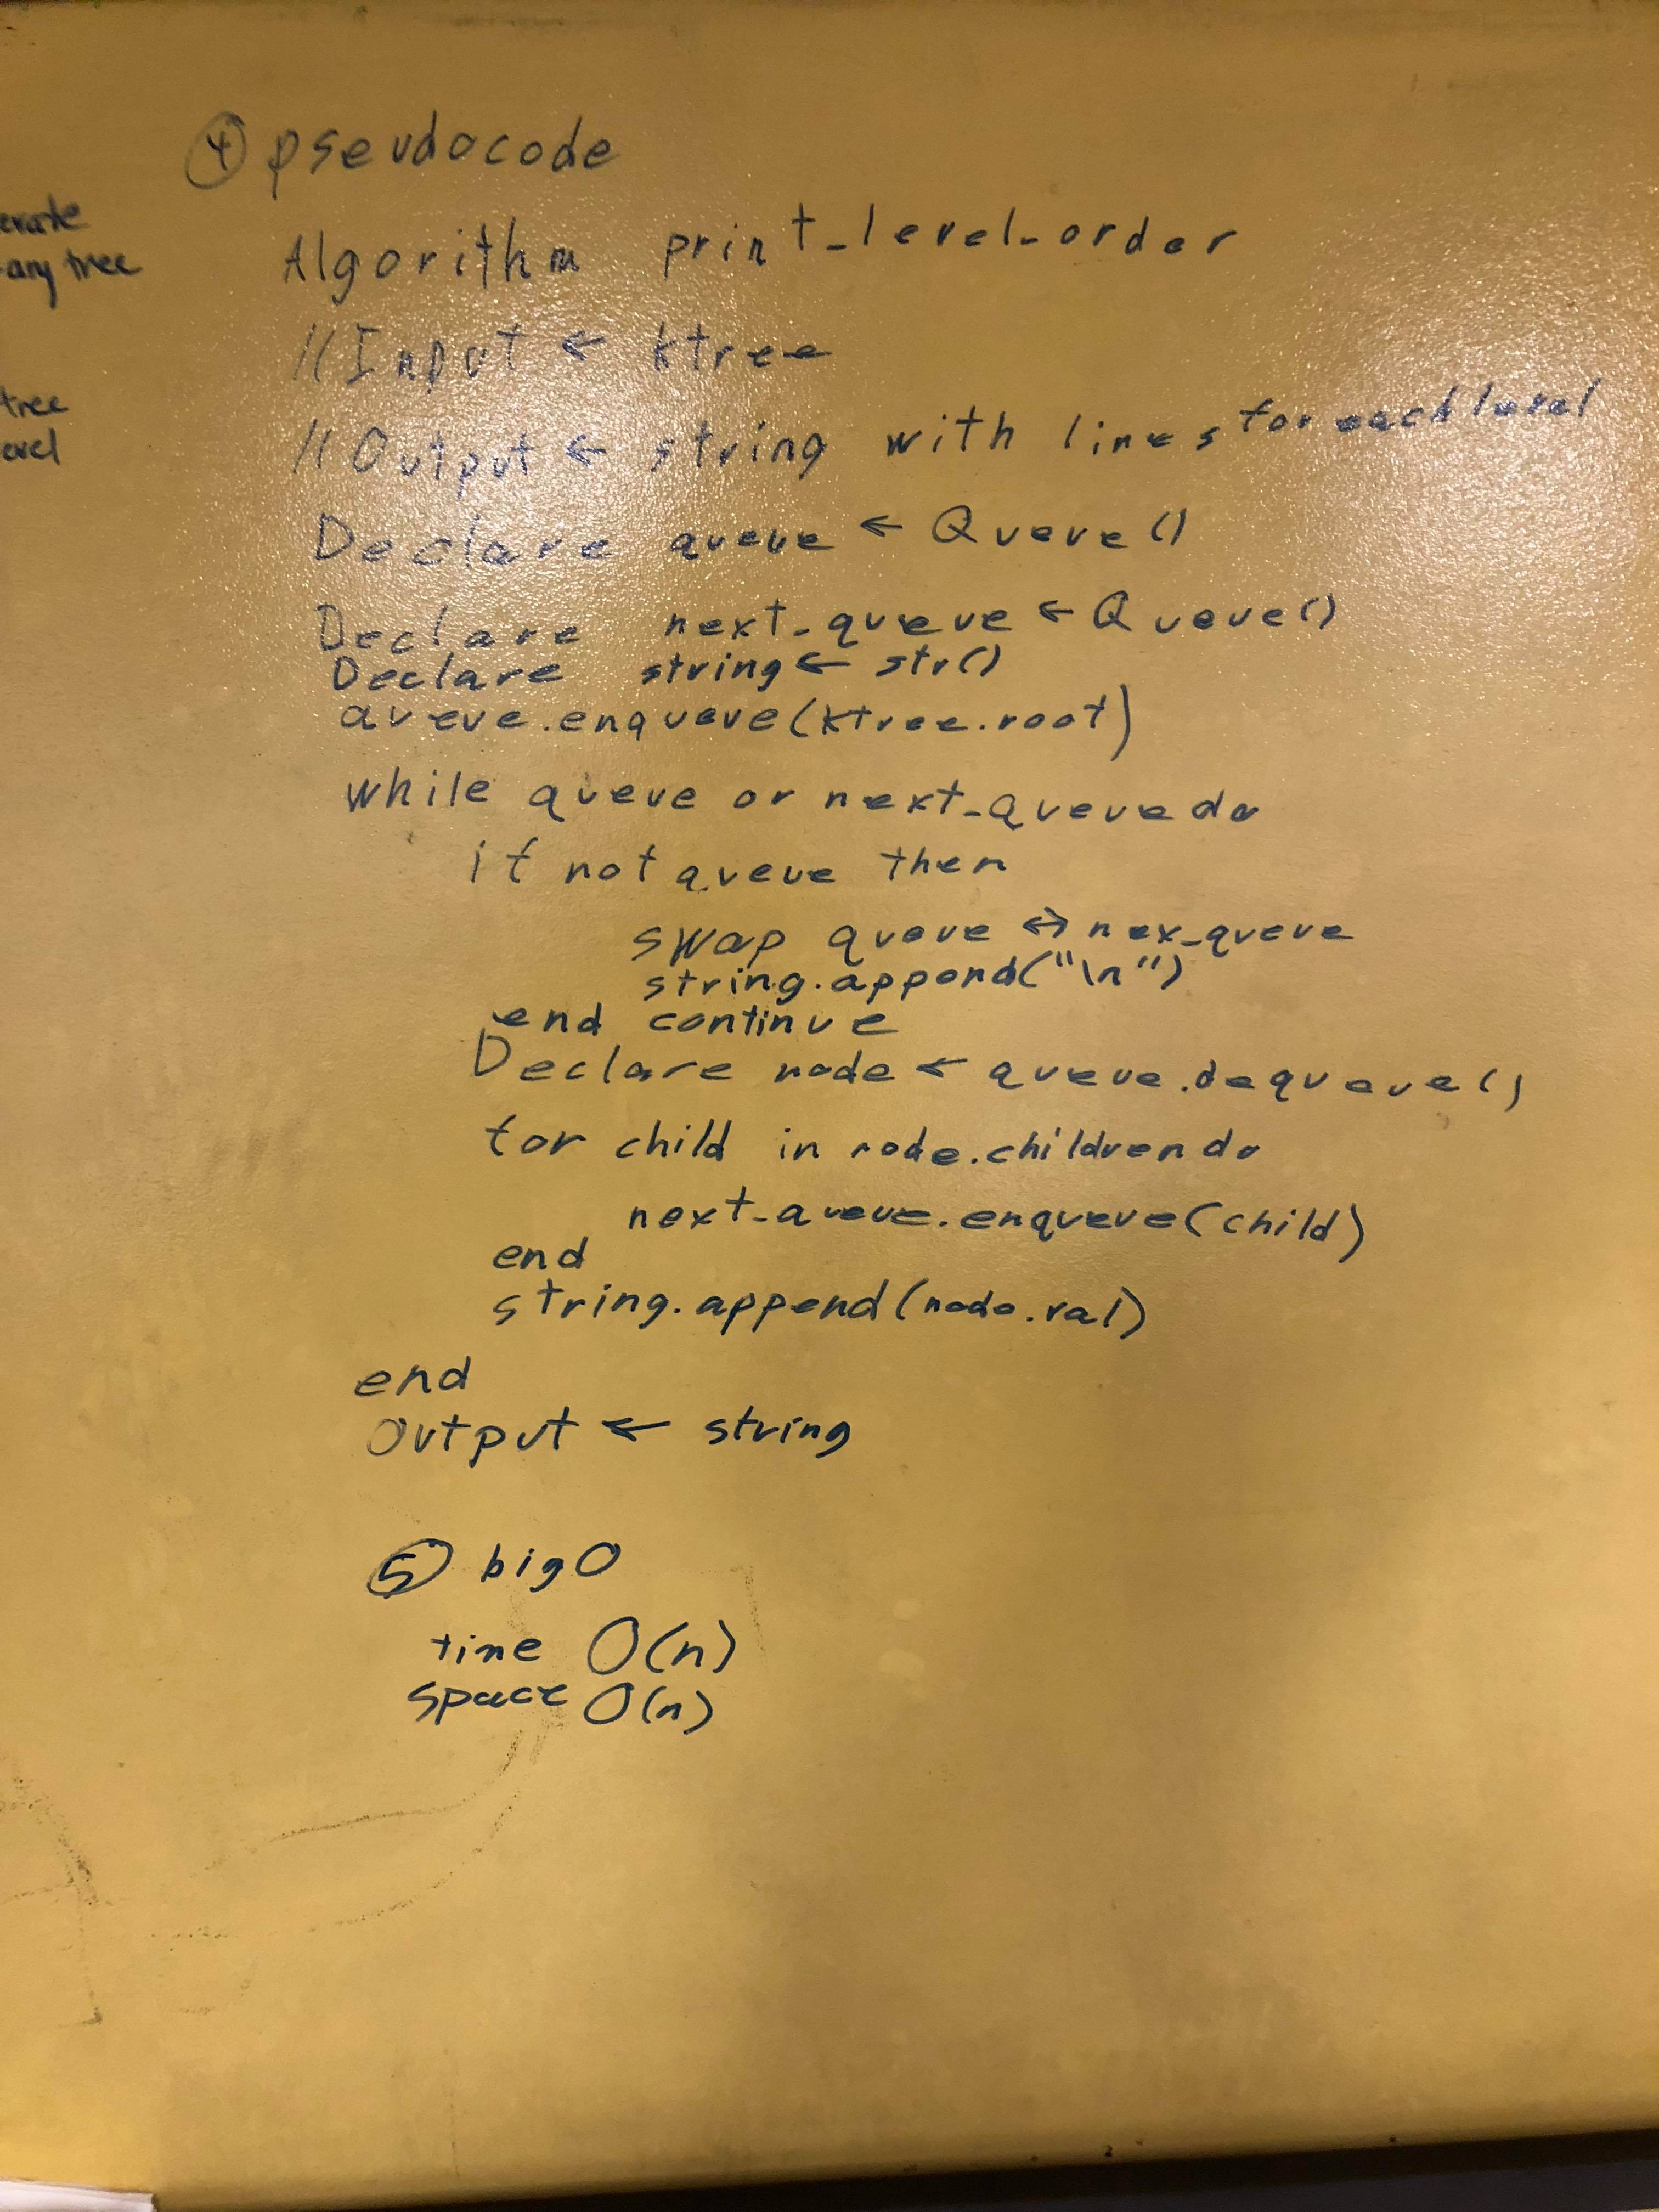 ④ pseudocode
erate
ary tree
Algorithm print_level_order
//Input ← ktree
tree
//Output ← string with lines for each level
Declare queue ← Queue()
Declare next_queue ← Queue()
Declare string ← str()
queue.enqueue(ktree.root)
while queue or next_queue do
if not queue then
swap queue ↔ nex_queue
string.append("\n")
end continue
Declare node ← queue.dequeue()
for child in node.children do
next_queue.enqueue(child)
end
string.append(node.val)
end
Output ← string
⑤ big O
time O(n)
space O(n)